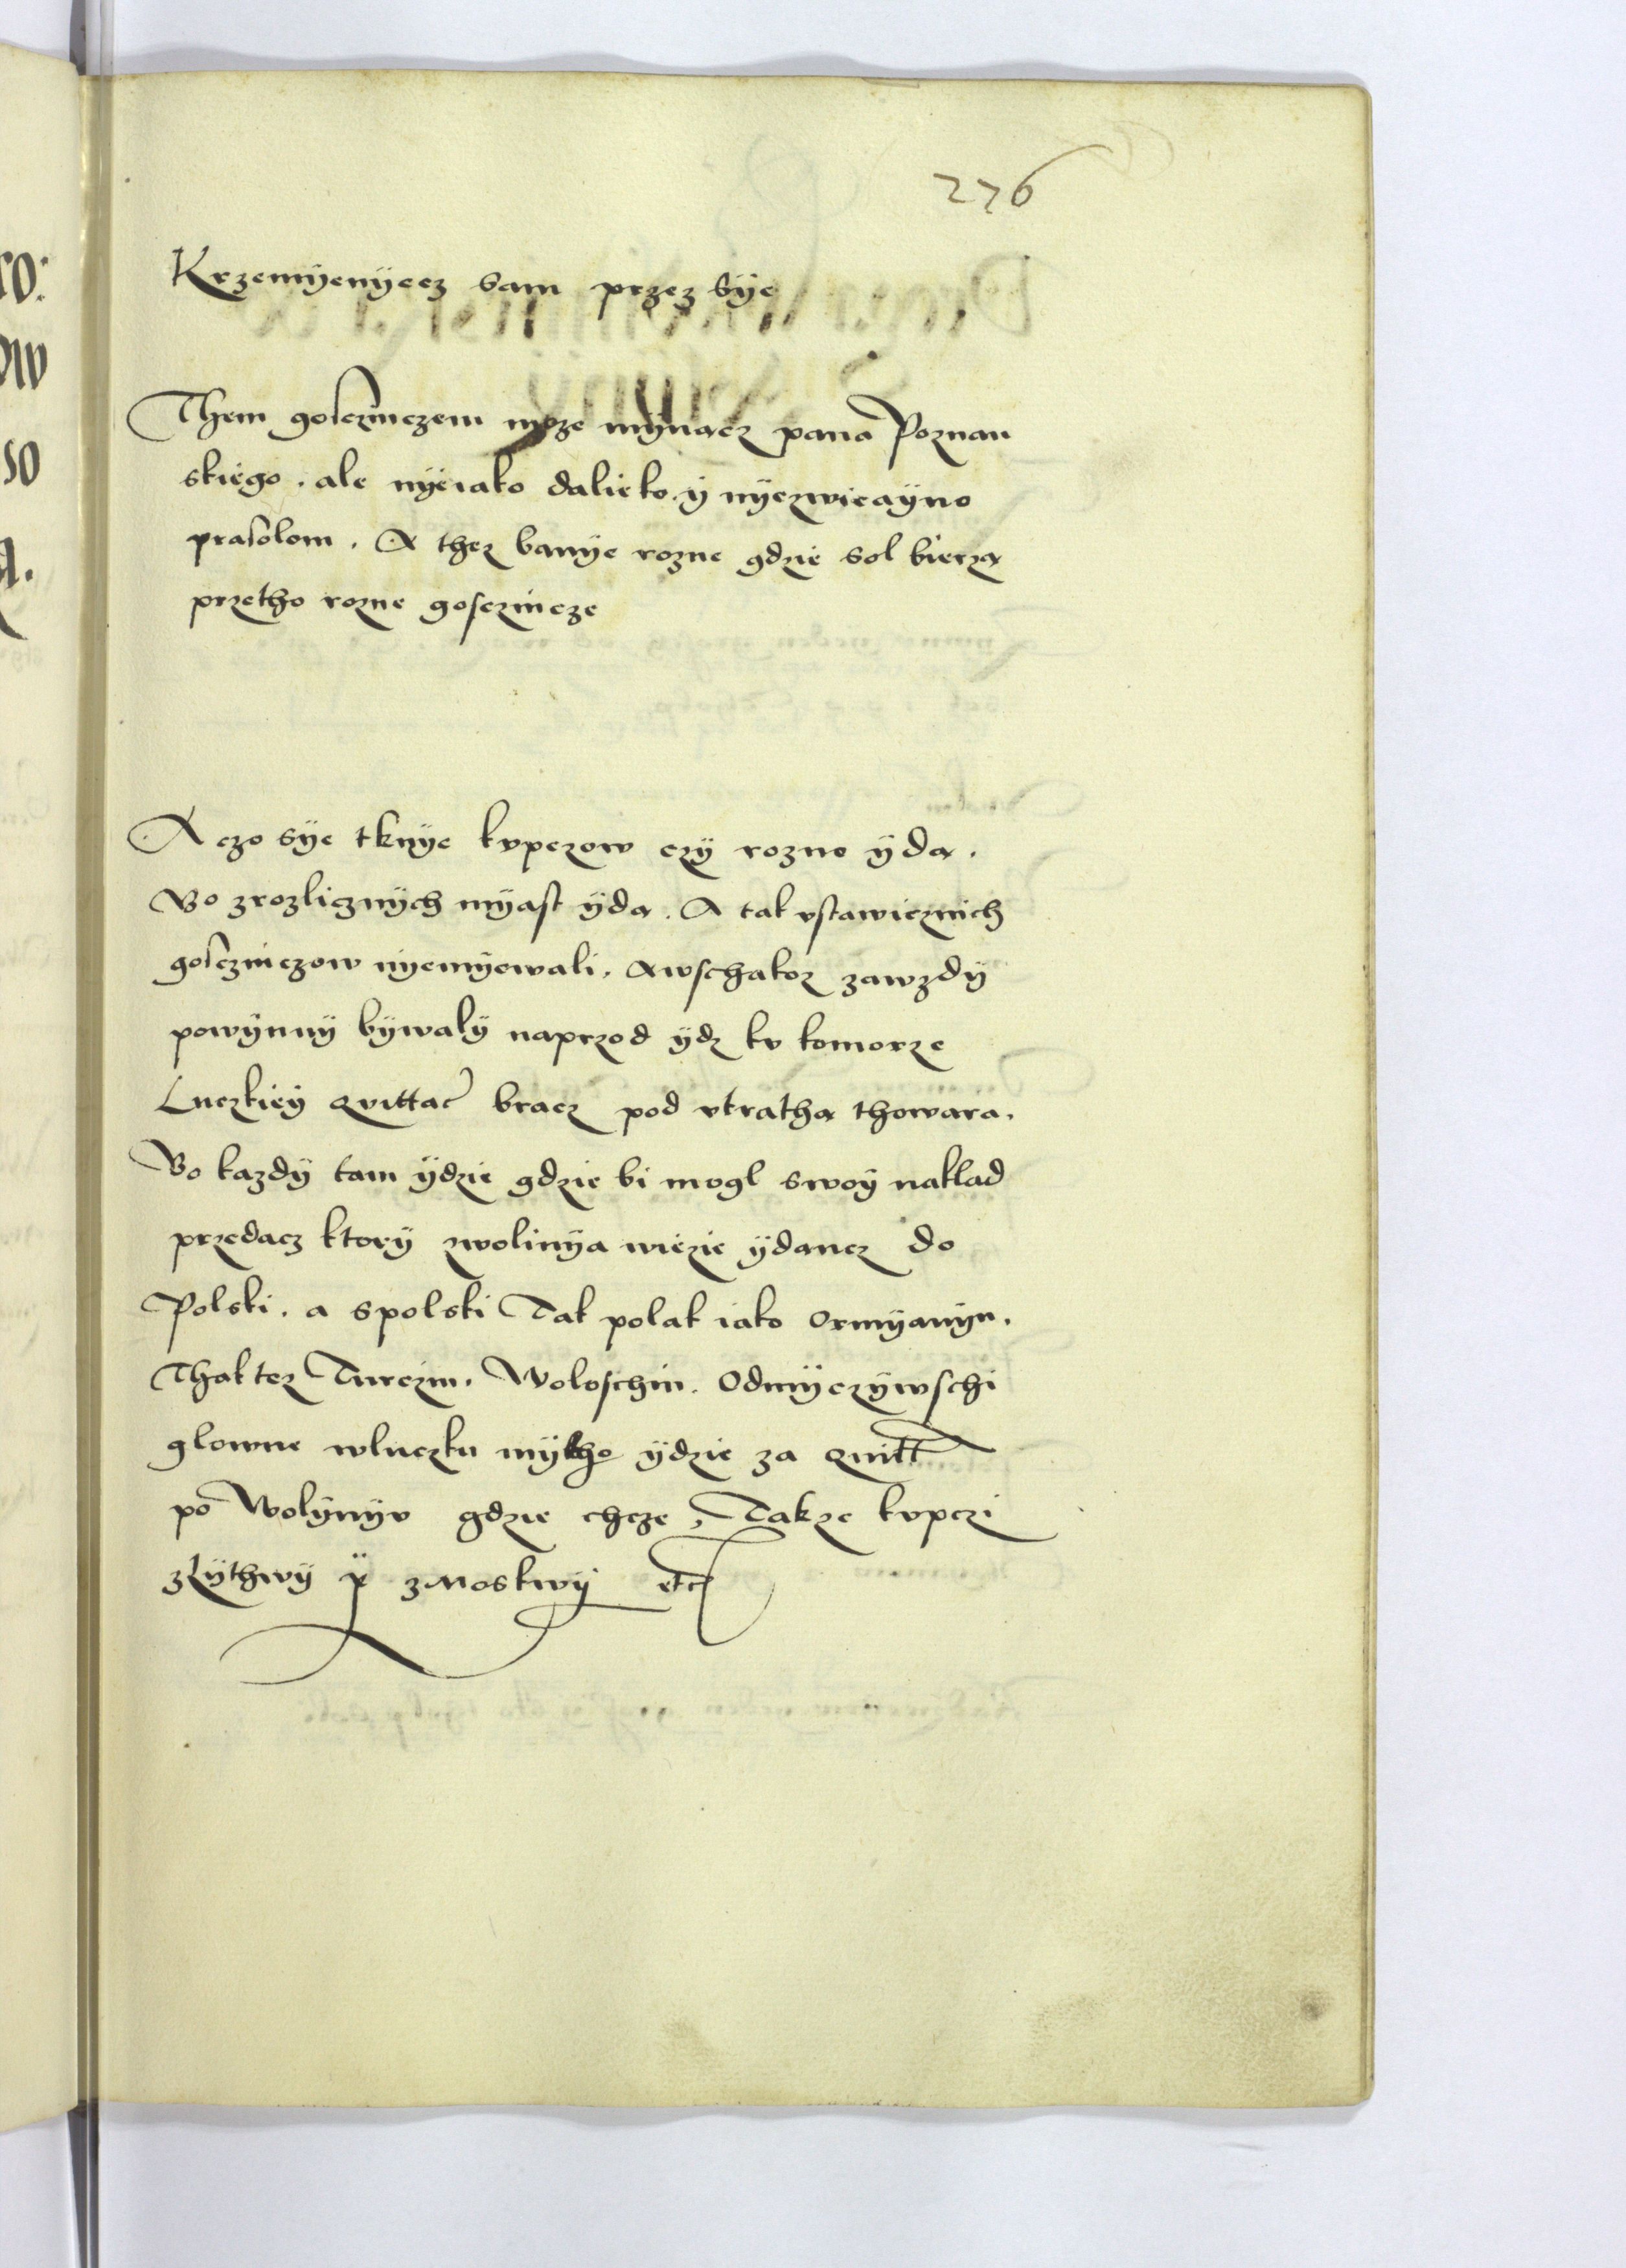 276
Krzemÿenÿecz sam przez sÿe
Them gosczinczem moze mÿnacz pana Poznan
skiego. ale nÿeiako dalieko. ÿ nÿezwicaÿno
prasolom. A thez banÿe rozne gdzie sol bierza
przetho rozne gosczincze
A czo sÿe tknÿe kvpczow czÿ rozno ÿda.
Bo zrozlicznÿch mÿast ÿda. A tak vstawicznich
gosczinczow nÿemÿewali. Awschakoz zawzdÿ
powÿnnÿ bÿwalÿ naprzod ÿdz kv komorze
Luczkieÿ qvittac bracz pod vtratha thowara.
Bo kazdÿ tam ÿdzie gdzie bi mogl swoÿ naklad
przedacz ktorÿ zwolinÿa wiezie ÿdancz do
Polski. a spolski Tak polak iako ormÿanÿn.
Thak tez Turczin. Woloschin. Odmÿczÿwschi
glowne wluczku mÿtho ÿdzie za quitt
po Wolÿnÿv gdzie chcze, Takze kvpczi
zLÿthwÿ ÿ zMoskwÿ etc